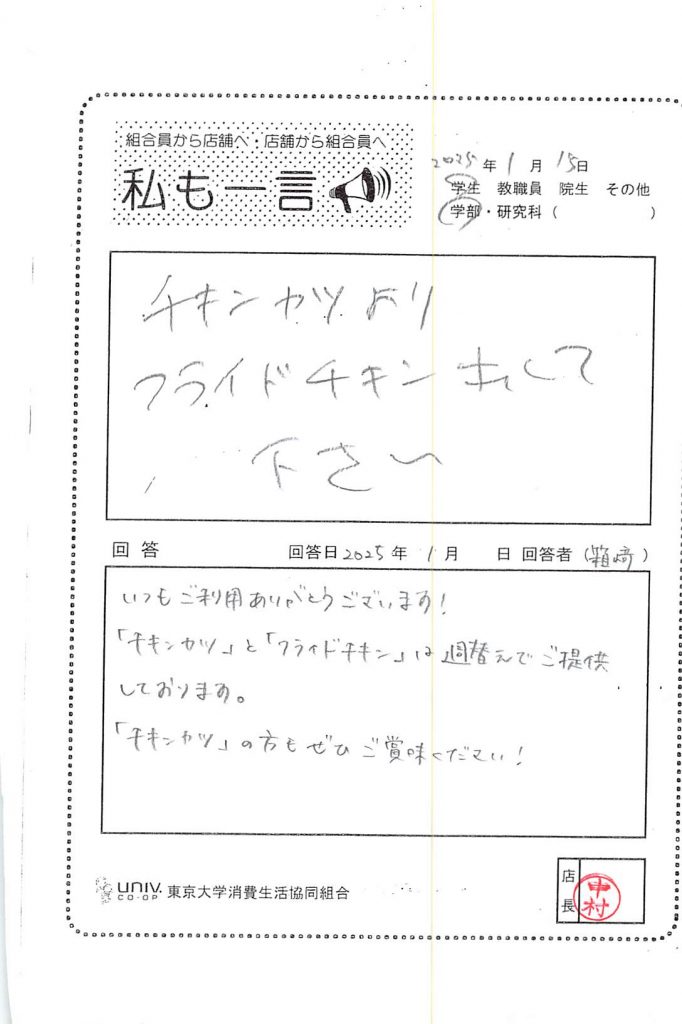 組合員から店舗へ・店舗から組合員へ
私も一言
2025年1月15日
学生 教職員 院生 その他
学部・研究科（ ）
チキンカツより
フライドチキン出して
下さい
回答 回答日2025年1月 日 回答者（箱崎）
いつもご利用ありがとうございます！
「チキンカツ」と「フライドチキン」は週替えでご提供
しております。
「チキンカツ」の方もぜひご賞味ください！
UNIV.
CO-OP
東京大学消費生活協同組合
店長
中村